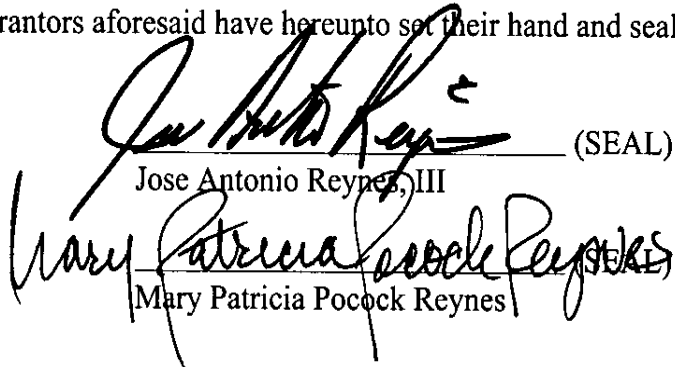 rantors aforesaid have hereunto set their hand and seal
Jose Antonio Reynes (SEAL)
Jose Antonio Reynes, III
Mary Patricia Pocock Reynes (SEAL)
Mary Patricia Pocock Reynes